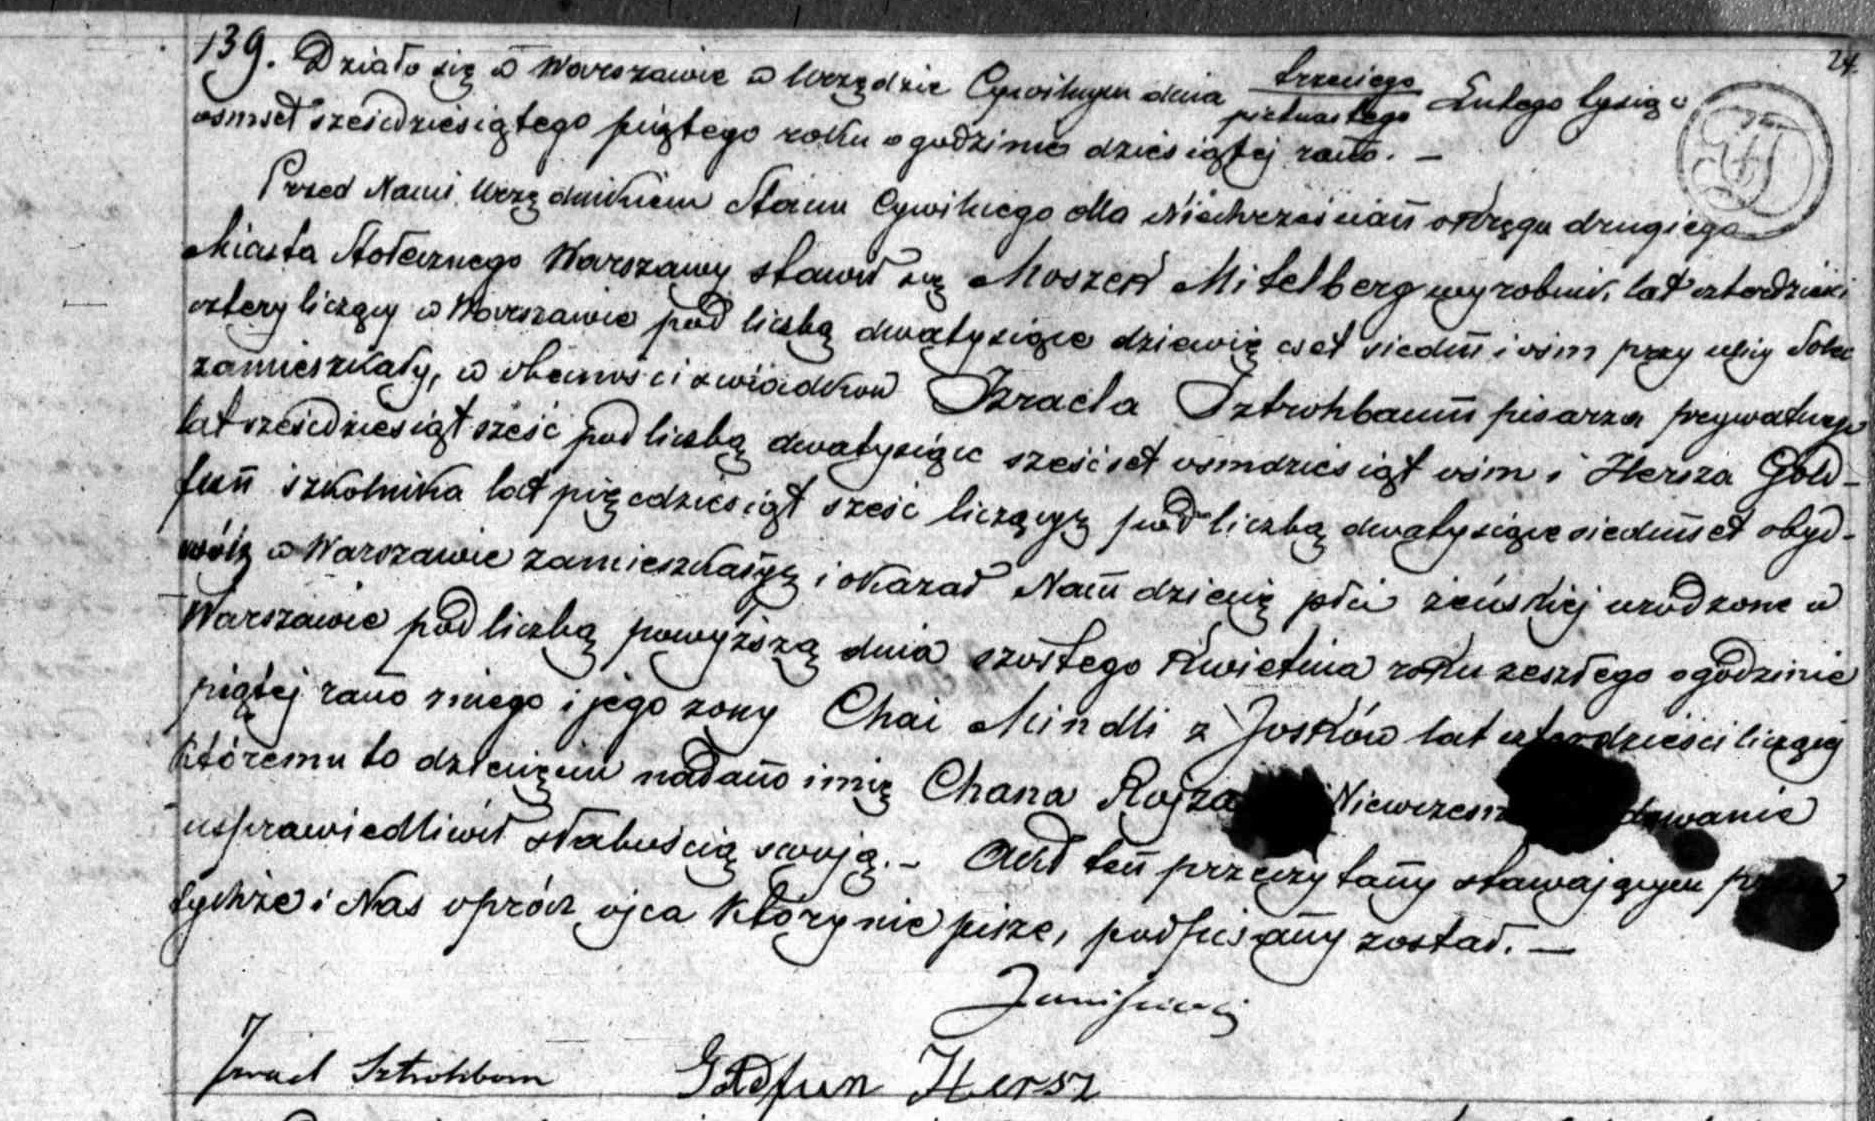 24.
139. Działo się w Warszawie w Urzędzie Cywilnym dnia trzeciego / piętnastego Lutego tysiąc
osmset sześćdziesiątego piątego roku o godzinie dziesiątej rano. —
Przed Nami Urzędnikiem Stanu Cywilnego dla Niechrześcian okręgu drugiego
Miasta Stołecznego Warszawy stawił się Moszek Mitelberg wyrobnik, lat czterdzieści
cztery liczący w Warszawie pod liczbą dwatysiące dziewięćset siedm i ośm przy ulicy Solec
zamieszkały, w obecności świadków Izraela Sztrohbaum pisarza prywatnego
lat sześćdziesiąt sześć pod liczbą dwatysiące sześćset osmdziesiąt ośm i Hersza Gold-
fun szkolnika lat pięćdziesiąt sześć liczących pod liczbą dwatysiące siedmset obyd-
wóch w Warszawie zamieszkałych i okazał Nam dziecię płci żeńskiej urodzone w
Warszawie pod liczbą powyższą dnia szóstego Kwietnia roku zeszłego o godzinie
piątej rano z niego i jego żony Chai Mindli z Josków lat czterdzieści liczącej
któremu to dziecięciu nadano imię Chana Rojza Niewczesn dawanie
usprawiedliwił słabością swoją. — Akt ten przeczytany stawającym
tychże i Nas oprócz ojca który nie pisze, podpisany został. —
Izrael Sztrohbom Goldfun Hersz